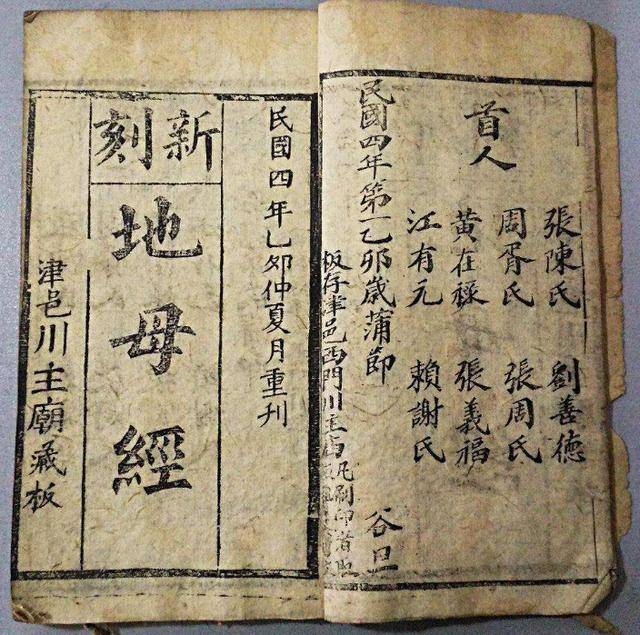 首人
張陳氏 劉善德
周胥氏 張周氏
黄在祿 張義福
江有元 賴謝氏
民國四年第一乙卯歲蒲節 谷旦
板存津邑西門川主
凡刷印者
民國四年乙夘仲夏月重刊
新刻
地母經
津邑川主廟藏板